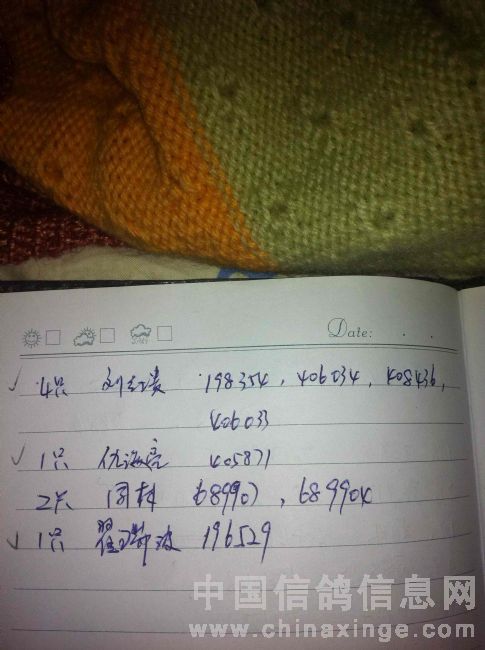 Date: . .
4只 刘红凑 198354, 406034, 408436,
406033
1只 优海亮 405871
2只 689907, 689904
1只 翟 波 196529
中国信鸽信息网
www.chinaxinge.com